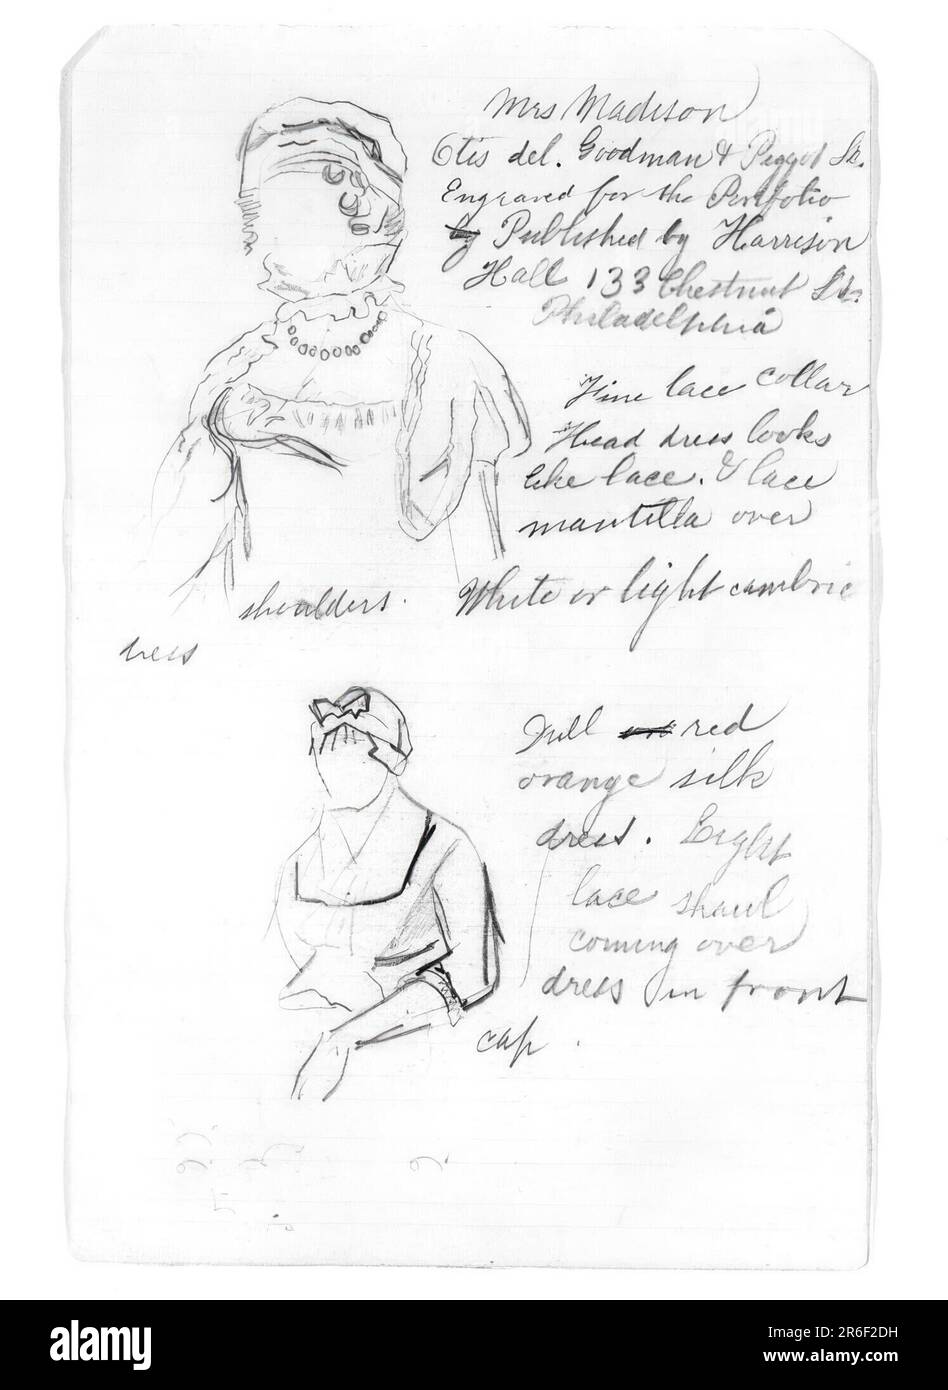 Mrs Madison
Otis del. Goodman & Piggot Sc.
Engraved for the Portfolio
by Published by Harrison
Hall 133 Chestnut St.
Philadelphia
Fine lace collar
Head dress looks
like lace. & lace
mantilla over
shoulders. White or light cambric
dress
Full red
orange silk
dress. Light
lace shawl
coming over
dress in front
cap.
alamy
Image ID: 2R6F2DH
www.alamy.com